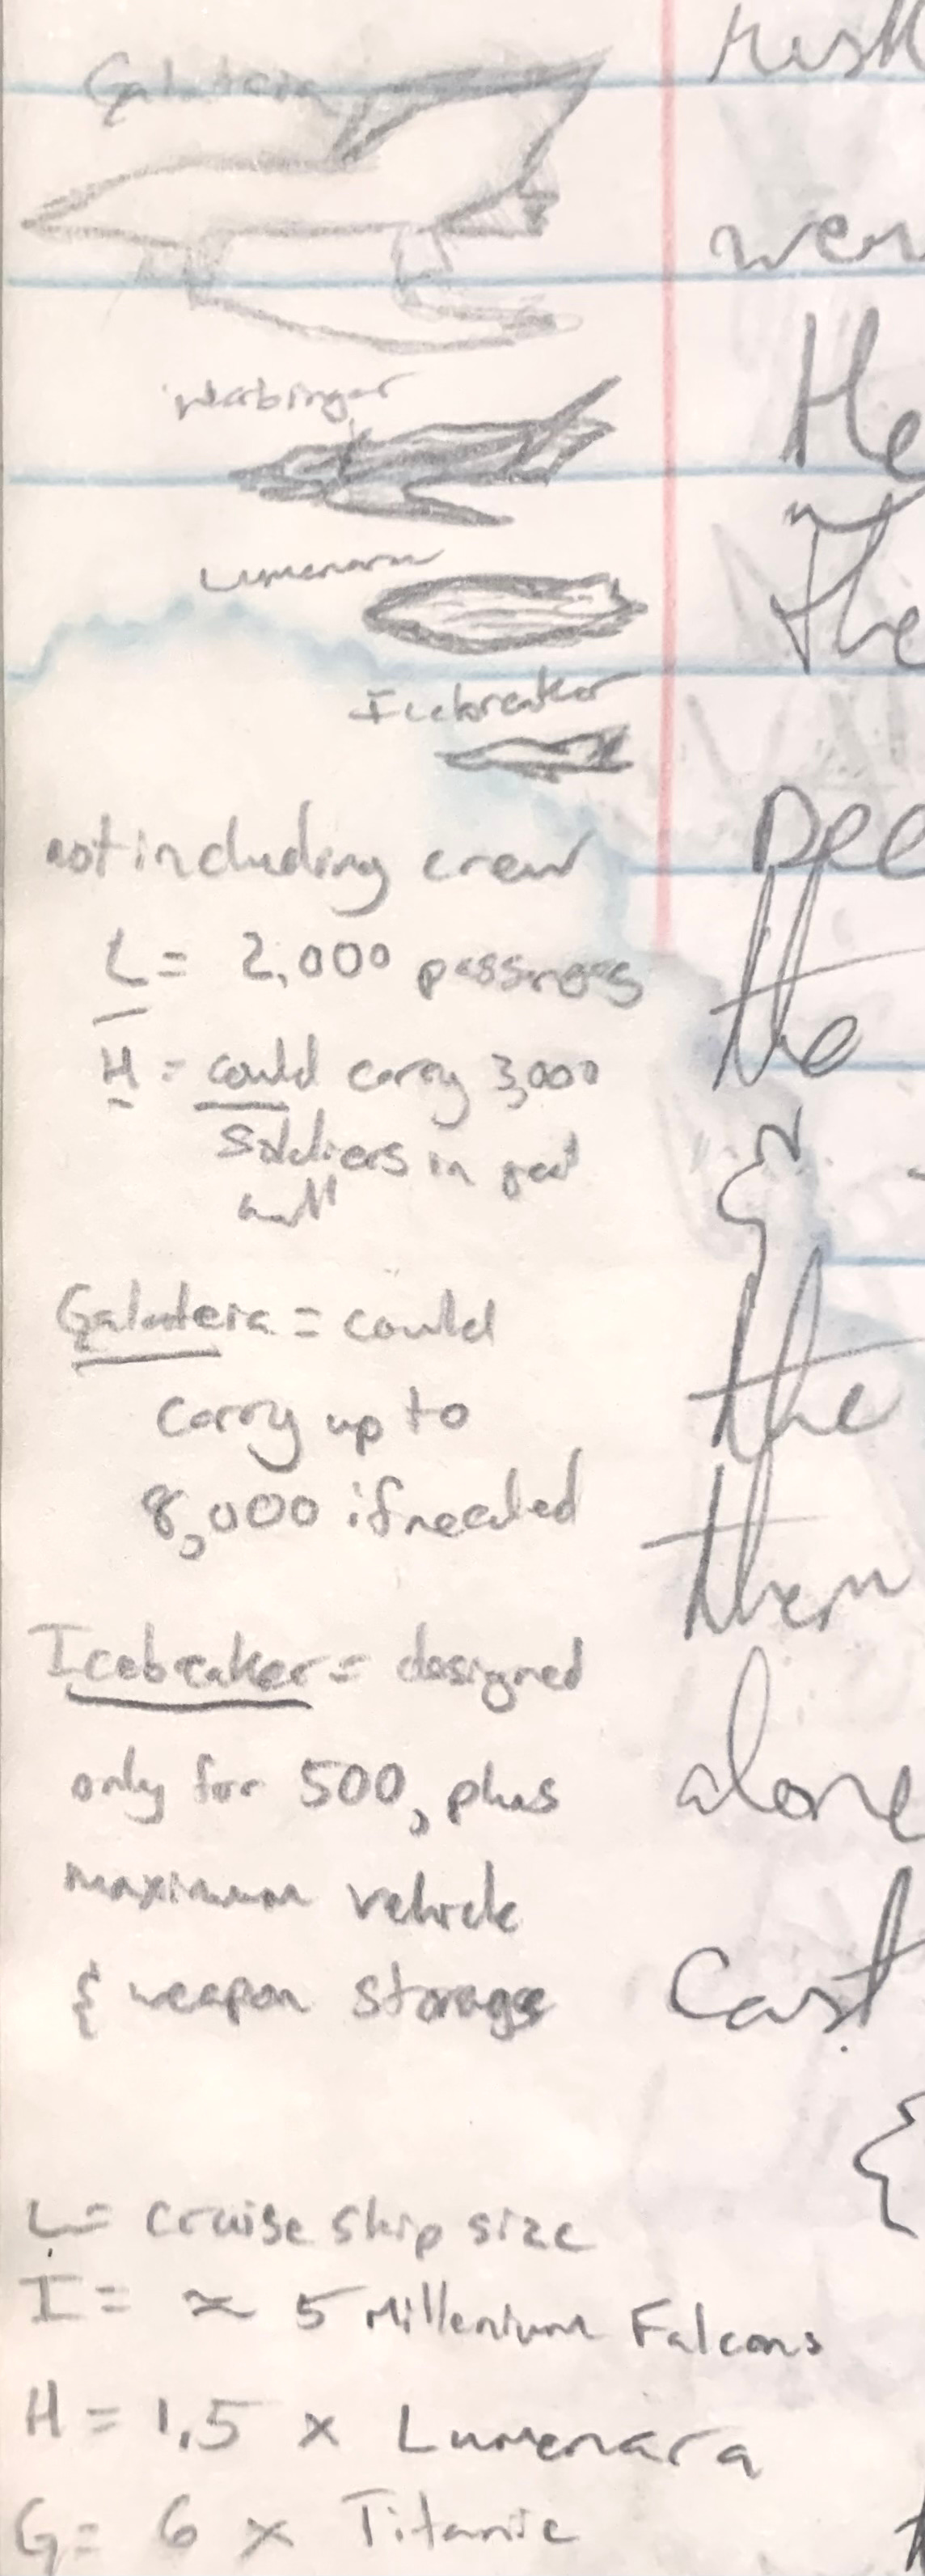 Galateia
risk
wer
Harbinger
He
Lumenara
The
Icebreaker
not including crew
L = 2,000
the
H = could carry 3,000
soldiers in
&
Galateia = could
the
carry up to
8,000 if needed
them
Icebreaker = designed
only for 500, plus
alone
maximum vehicle
& weapon storage
Cast
L = cruise ship size
I = ≈ 5 Millenium Falcons
H = 1.5 x Lumenara
G = 6 x Titanic